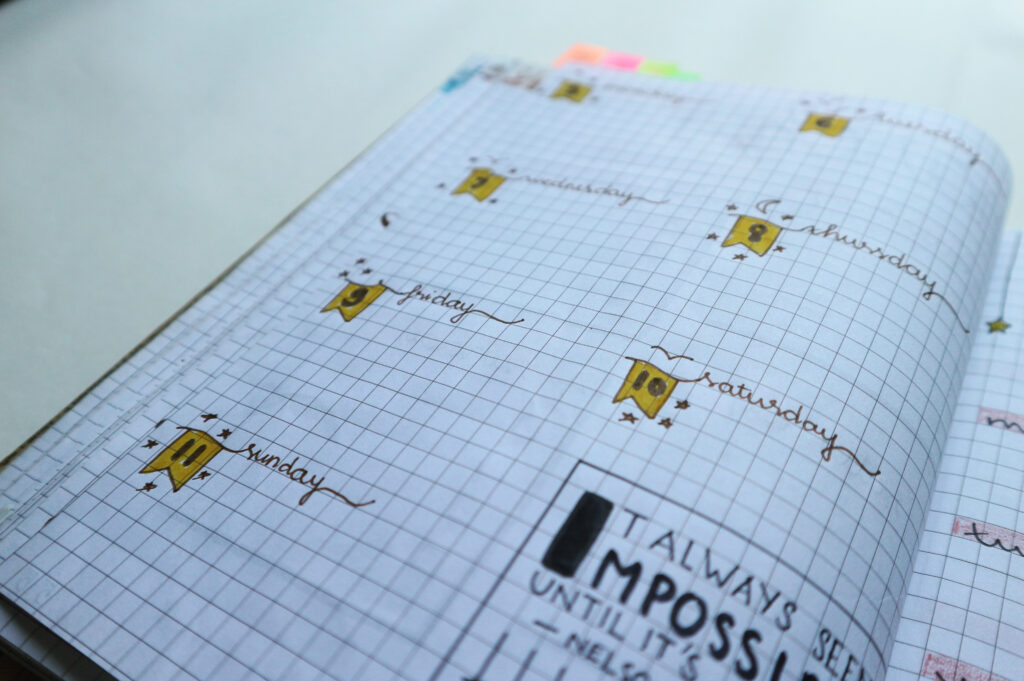 5 monday
6 tuesday
7 wednesday
8 thursday
9 friday
10 saturday
11 sunday
IT ALWAYS SEE
MPOSSI
UNTIL IT'S
— NELSO